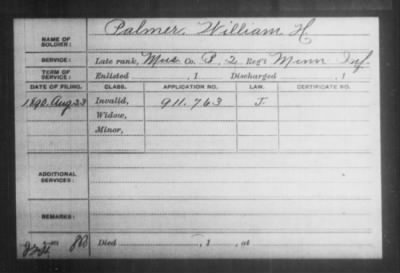 NAME OF SOLDIER: Palmer, William H
SERVICE: Late rank, Mus Co. B, 2 Reg't Minn Inf.
TERM OF SERVICE: Enlisted , 1 Discharged , 1
DATE OF FILING. CLASS. APPLICATION NO. LAW. CERTIFICATE NO.
1890. Aug 23 Invalid, 911.763 J.
Widow,
Minor,
ADDITIONAL SERVICES:
REMARKS:
Died , 1 , at